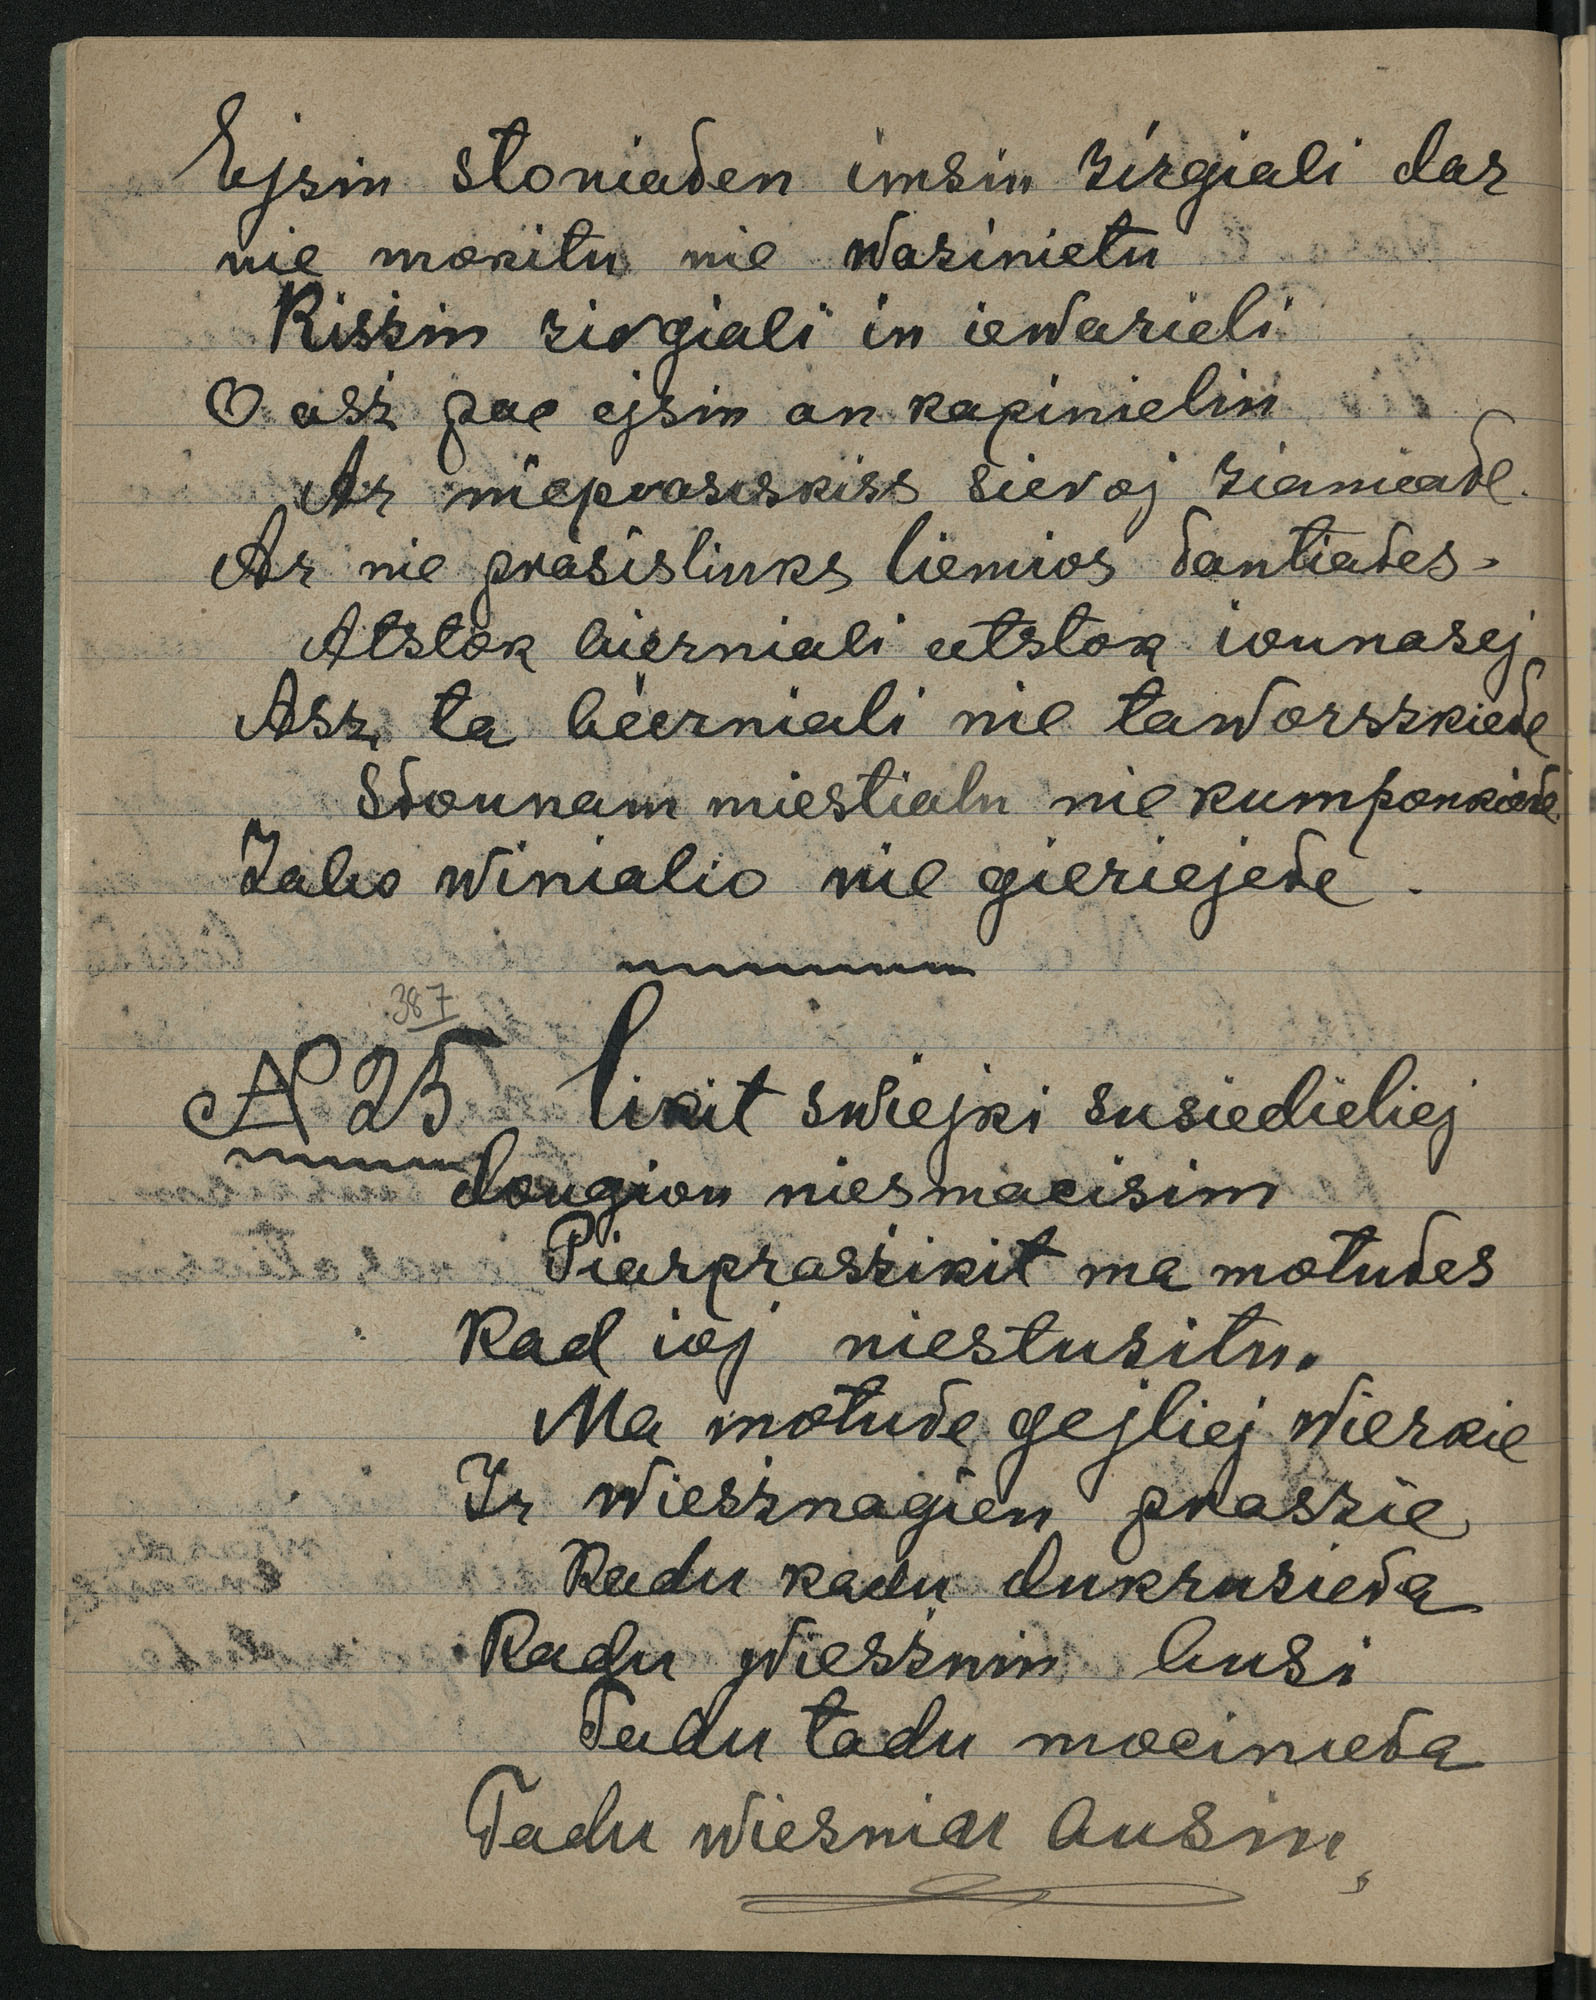 Ejsin stoniaden imsin zirgiali dar
nie mokitu nie wazinietu
Riszin zirgiali in iewarieli
O asz pac ejsin an kapinielin
Ar nieprasiskiss sieroj ziamiade.
Ar nie prasislinks liemios dantiades.
Atstok bierniali atstok iounasej
Asz ta bierniali nie taworszkiede
Sdounam miestialu nie kumponkiede.
Zalio winialio nie gieriejede.
387
№ 25 likit swiejki susiedieliej
dougiou niesmacisim
Pierpraszikit ma motudes
Kad ioj niestuzitu.
Ma motude gejliej wierkie
Ir wiesznagien praszie
Kadu kadu dukruzieda
Kadu wiesznin busi
Tadu tadu mocinieda
Tadu wieszniau busiu,